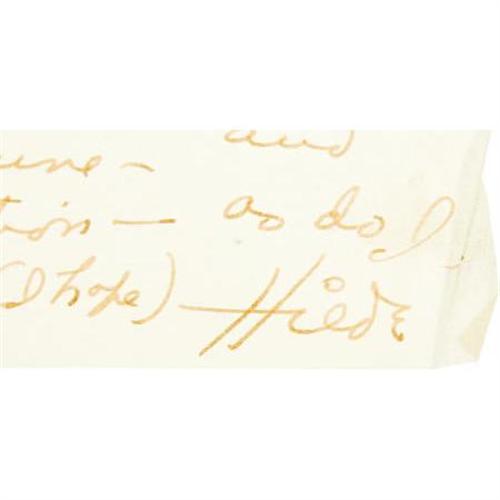 and
une-
tion — as do I.
(I hope) — Hilde